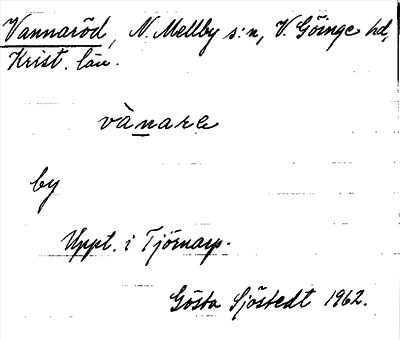 Vannaröd, N. Mellby s:n, V. Göinge hd,
Krist. län.
vànare
by
Uppt. i Tjörnarp.
Gösta Sjöstedt 1962.